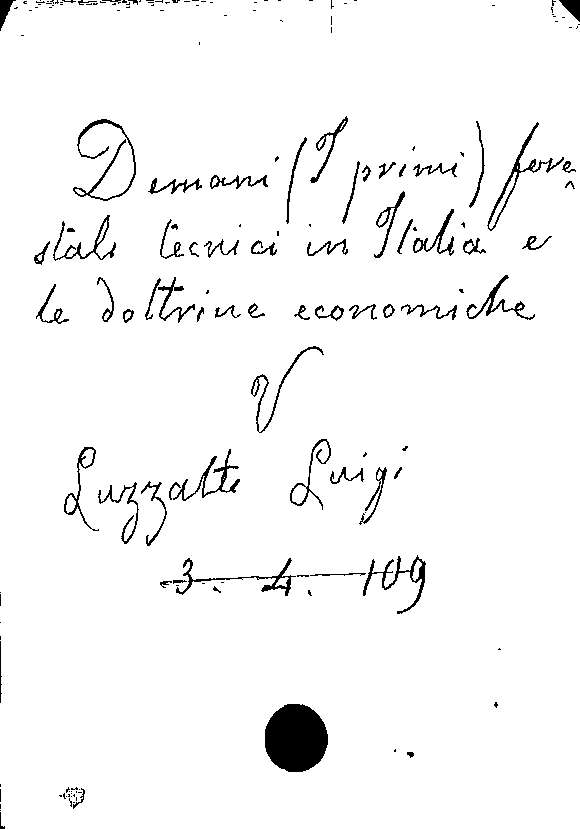 Demani (I primi) fore
stali tecnici in Italia e
le dottrine economiche
V
Luzzatti Luigi
3. 4. 109